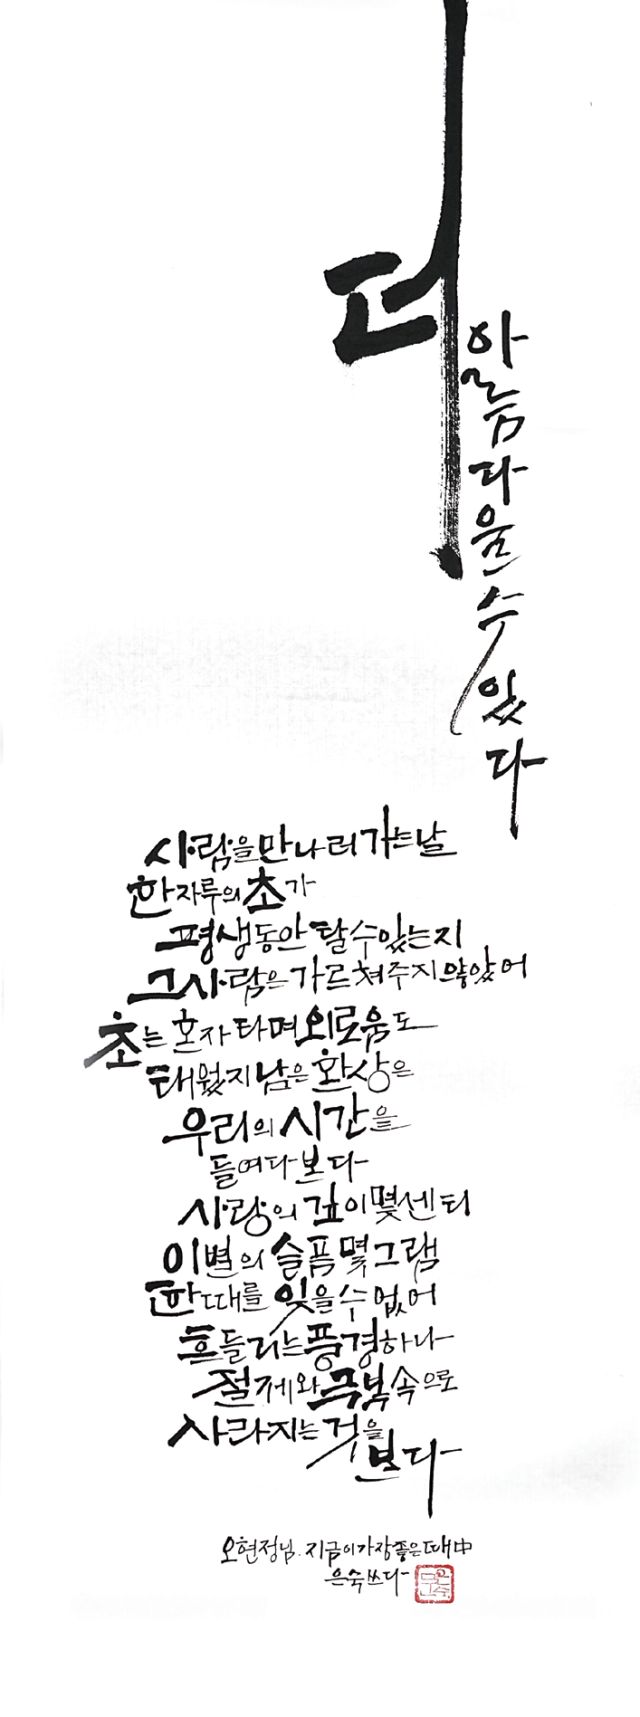 더
아름다울수있다
사람을만나러가는날
한자루의초가
평생동안탈수있는지
그사람은가르쳐주지않았어
초는혼자타며외로움도
태웠지남은환상은
우리의시간을
들여다본다
사랑의깊이몇센티
이별의슬픔몇그램
한때를잊을수없어
흔들리는풍경하나
절제와극복속으로
사라지는것을
본다
오현정님. 지금이가장좋은때中
은숙쓰다